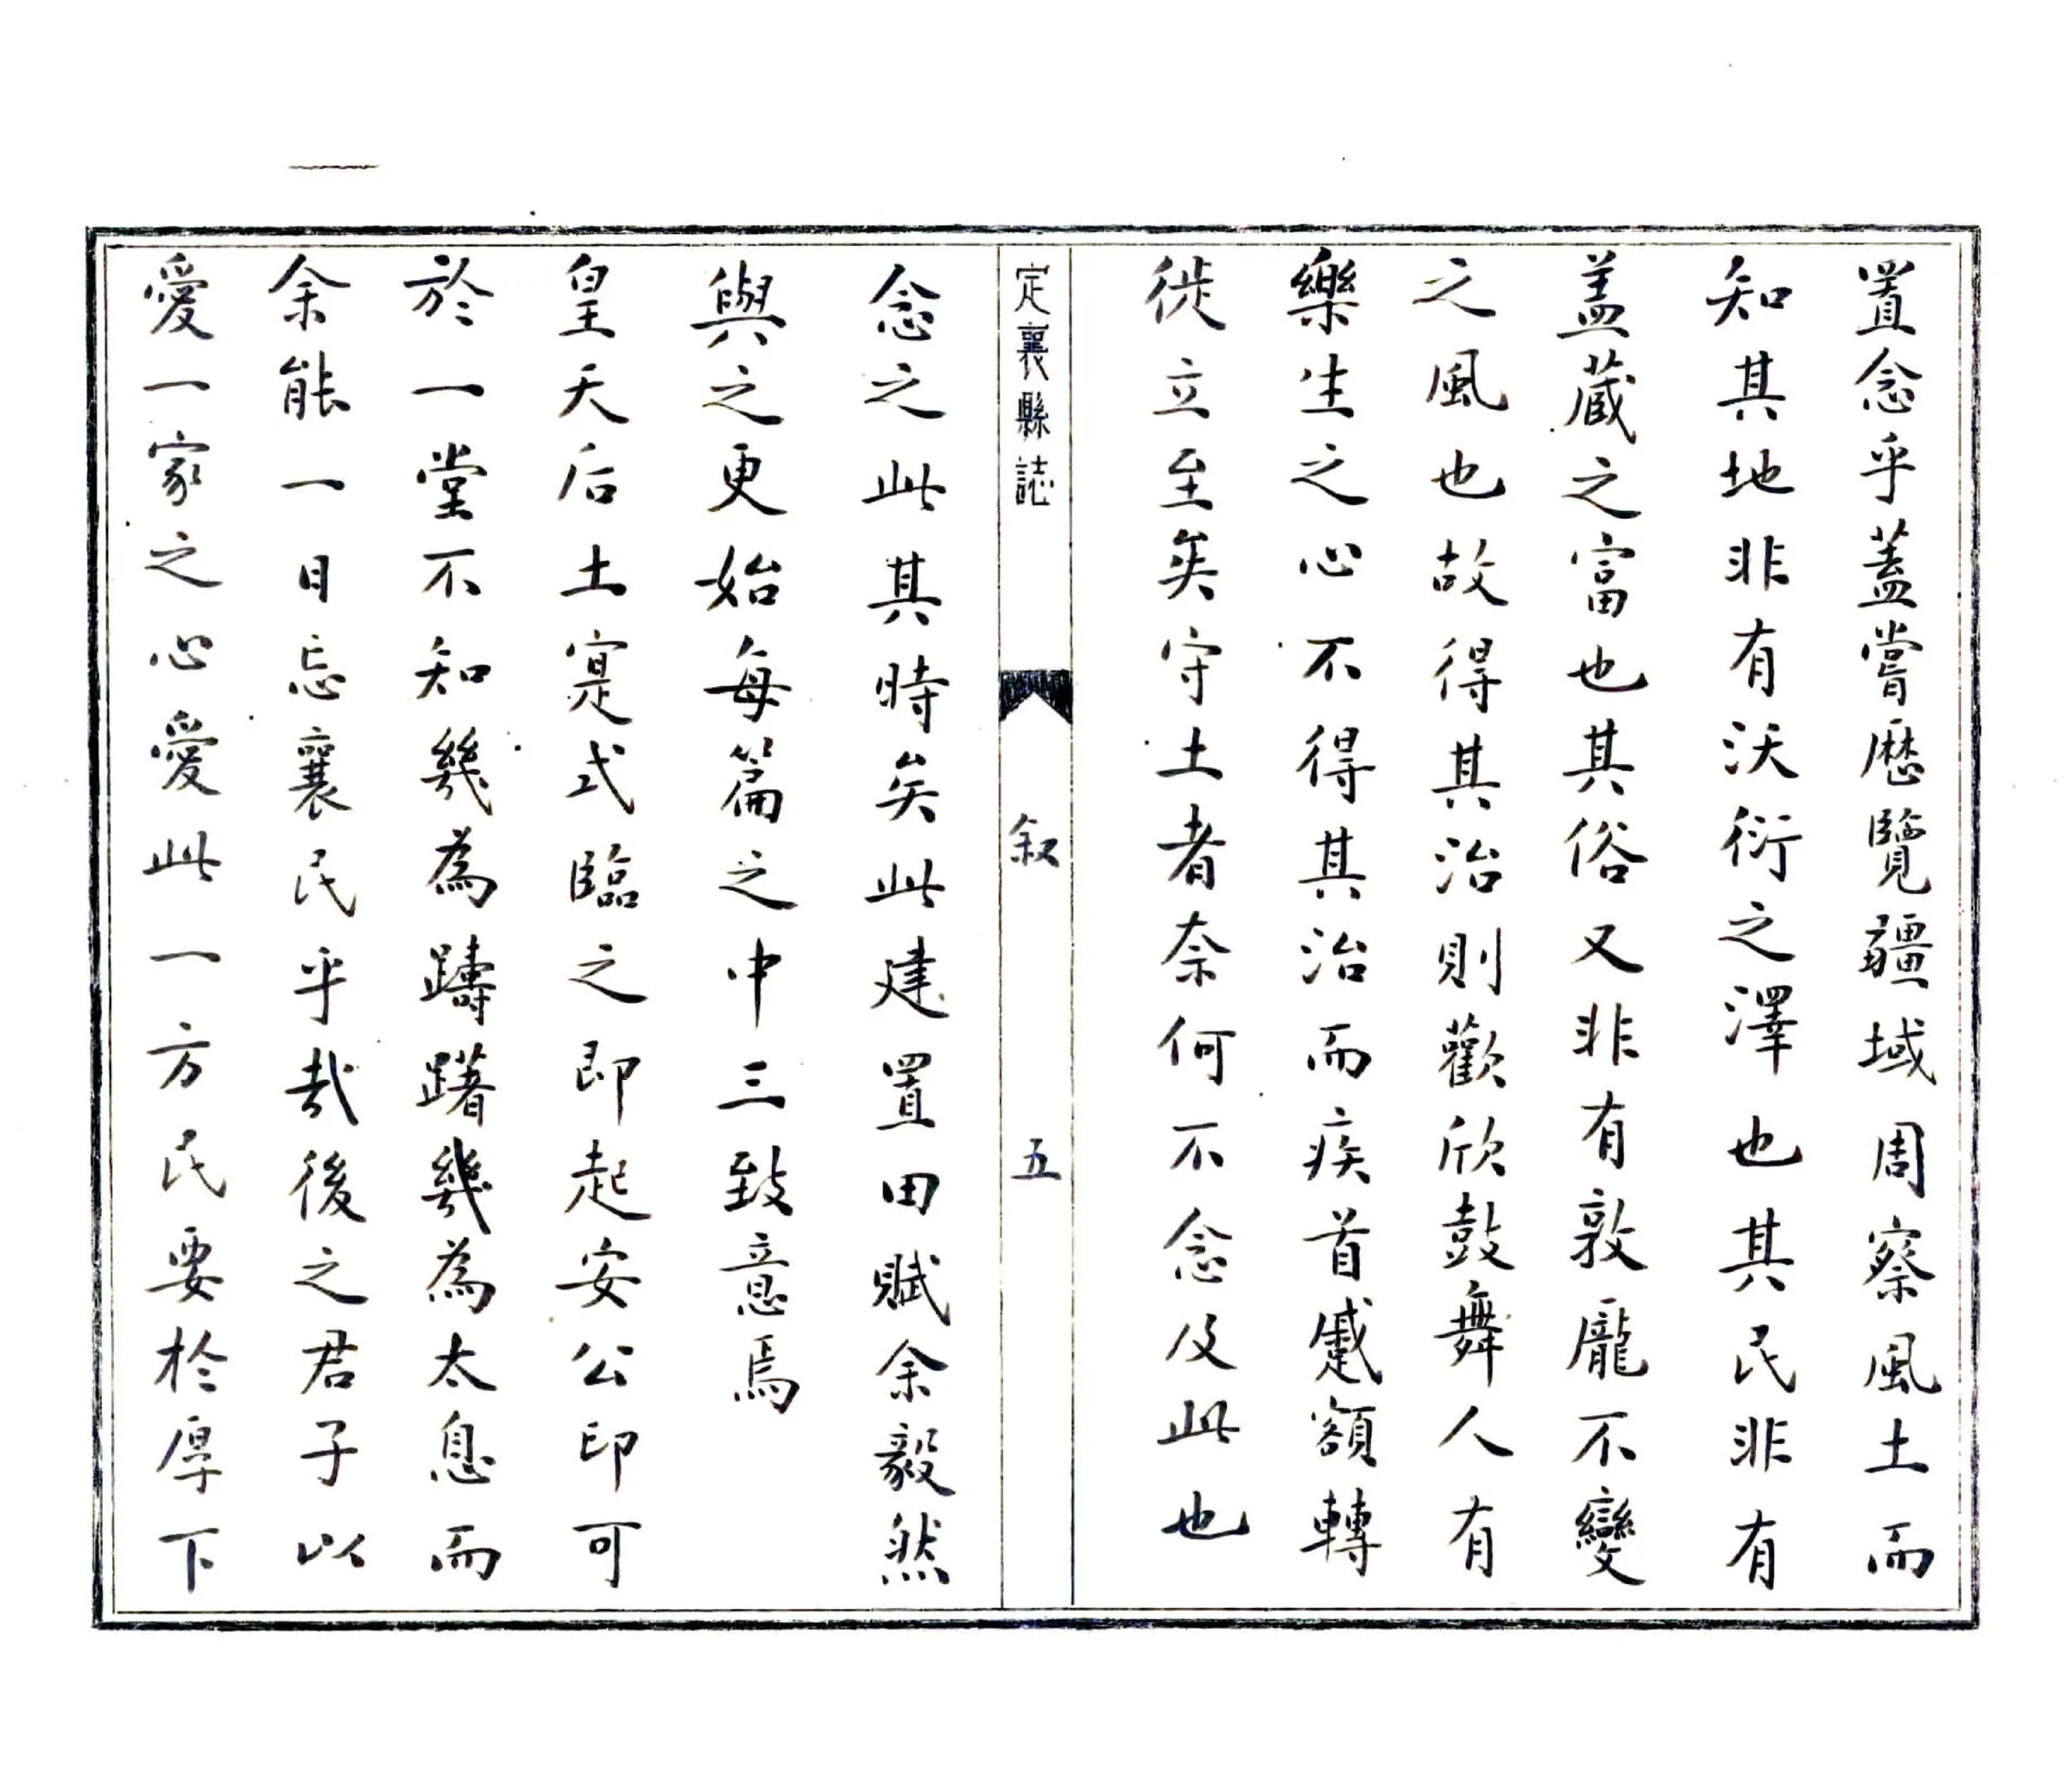 置念乎蓋嘗歷覽疆域周察風土而
知其地非有沃衍之澤也其民非有
盖藏之富也其俗又非有敦龐不變
之風也故得其治則歡欣鼓舞人有
樂生之心不得其治而疾首蹙額轉
徙立至矣守土者奈何不念及此也
定襄縣誌
叙
五
念之此其時矣此建置田賦余毅然
與之更始每篇之中三致意焉
皇天后土寔式臨之即起安公印可
於一堂不知幾為躊躇幾為太息而
余能一日忘襄民乎哉後之君子以
愛一家之心愛此一方民要於厚下